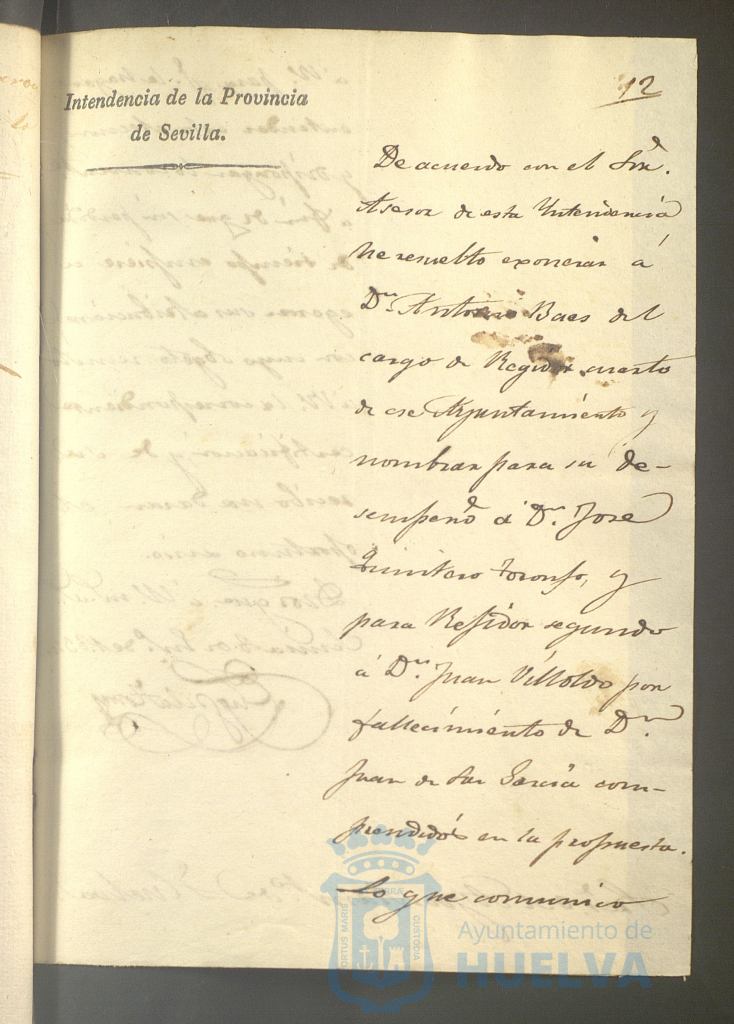 12
Intendencia de la Provincia
de Sevilla.
De acuerdo con el Sor.
Asesor de esta Yntendencia
he resuelto exonerar á
Dn. Antonio Baes del
cargo de Regidor cuarto
de ese Ayuntamiento y
nombrar para su de-
sempeño á Dn. José
Quintero, y
para Regidor segundo
á Dn. Juan Villoldo por
fallecimiento de Dn.
Juan de Garcia com-
prendidos en la propuesta.
Lo que comunico
PORTUS MARIS
CUSTODIA
Ayuntamiento de
HUELVA